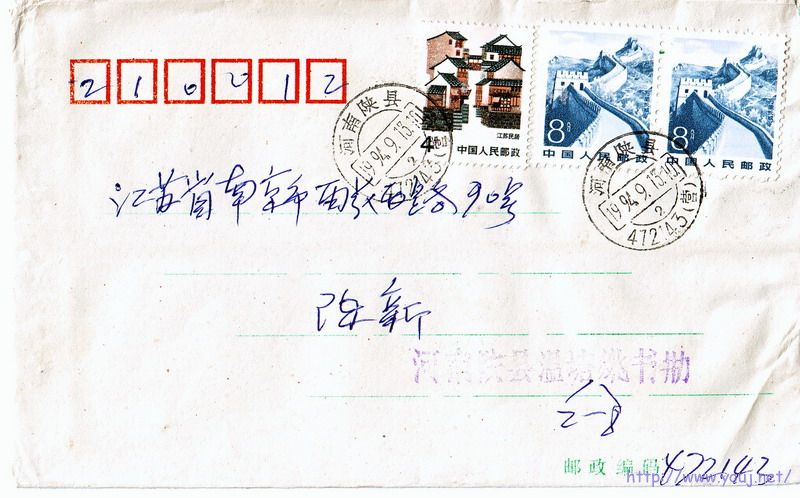 210012
河南陕县
1994.9.13.10
2
472143(营)
江苏民居
4分
中国人民邮政
8分
中国人民邮政
8分
中国人民邮政
河南陕县
1994.9.13.10
2
472143(营)
江苏省南京市 路90号
陈新
河南陕县温塘 书册
邮政编码 472143
http://www.youj.net/